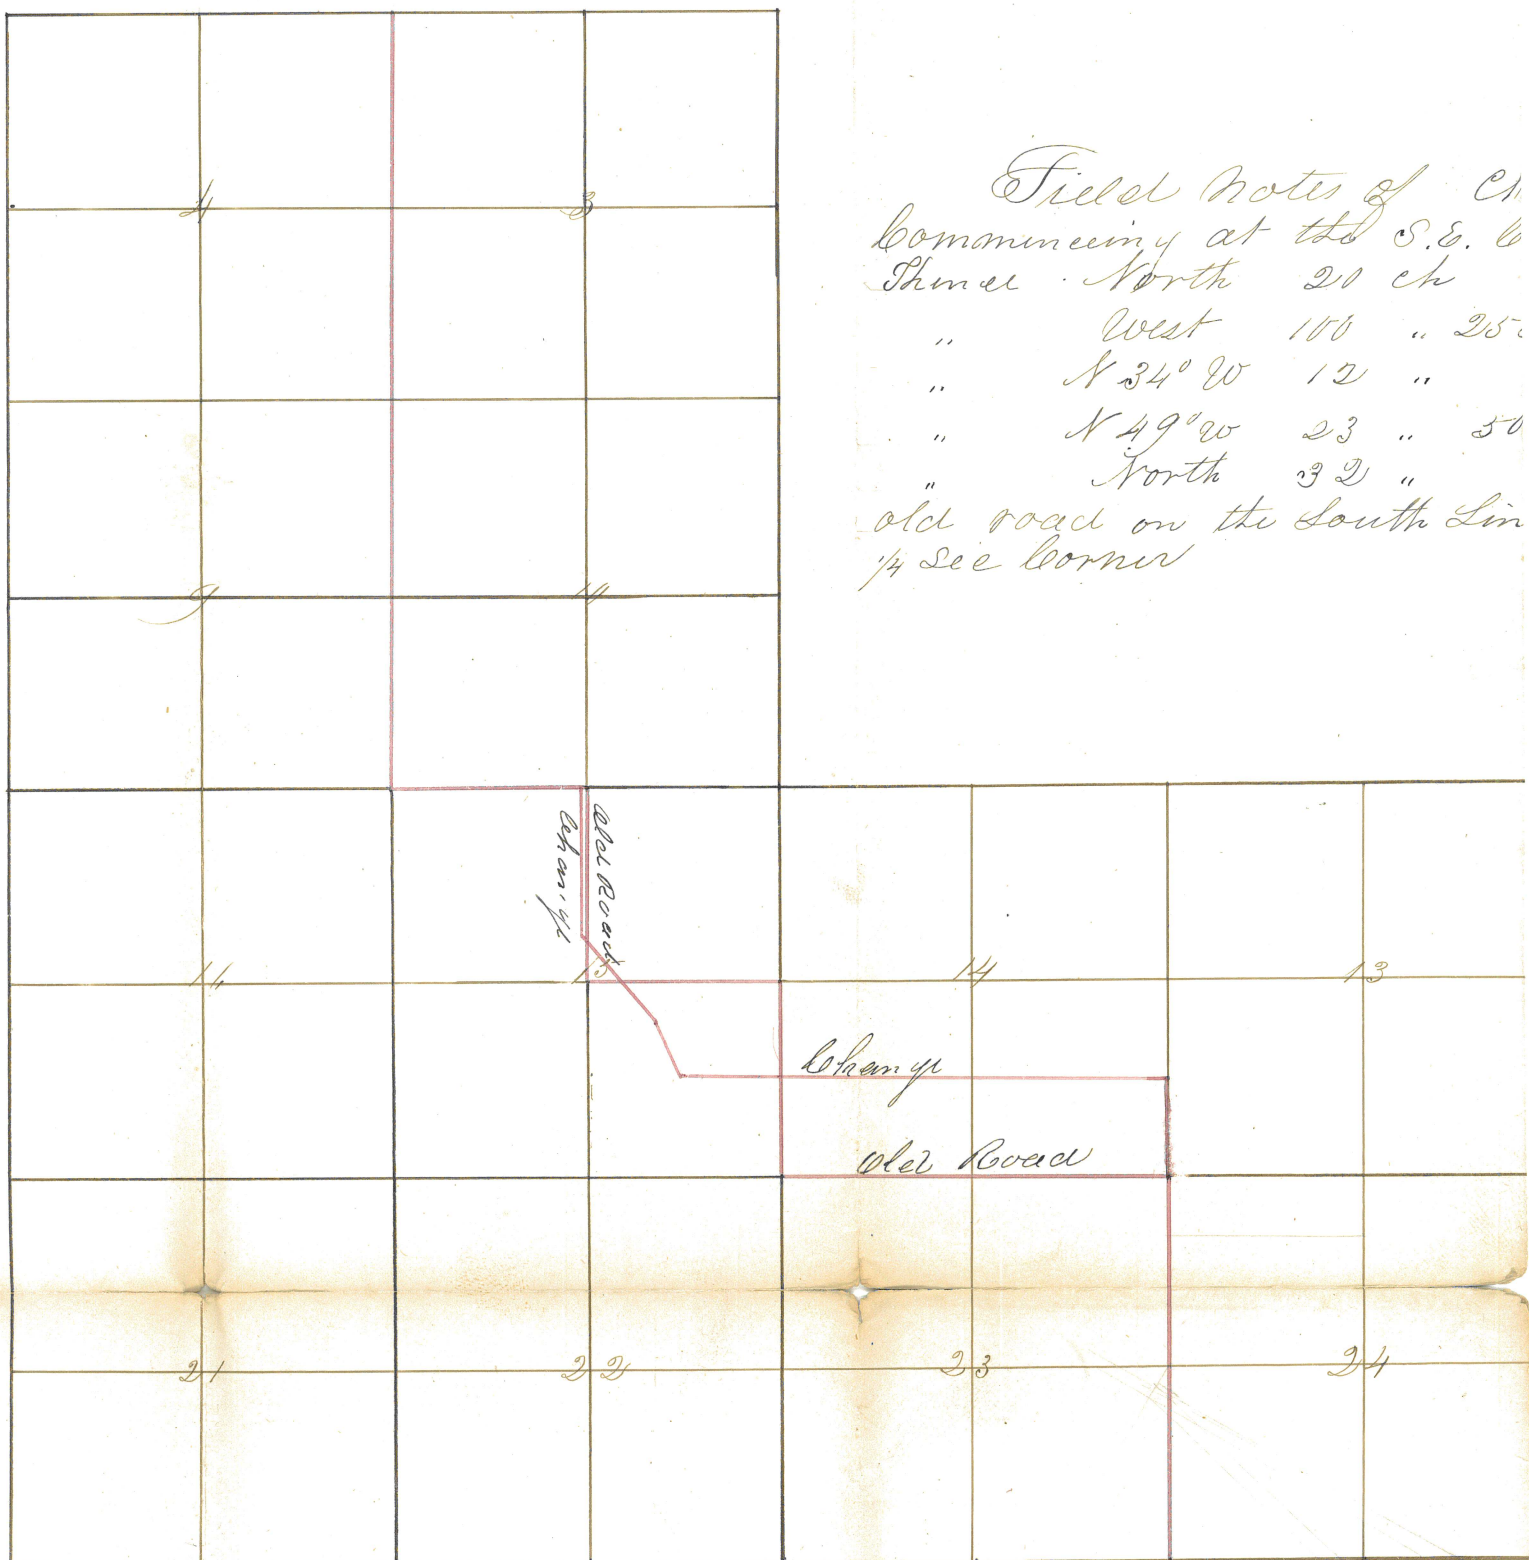 Field Notes of Ch
Commenceing at the S.E. C
Thence North 20 ch
" West 100 " 25
" N 34° W 12 "
" N 49° W 23 " 50
" North 32 "
old road on the South Lin
1/4 Sec Corner
4
3
9
10
Old Road
Change
16
15
14
13
Change
Old Road
21
22
23
24